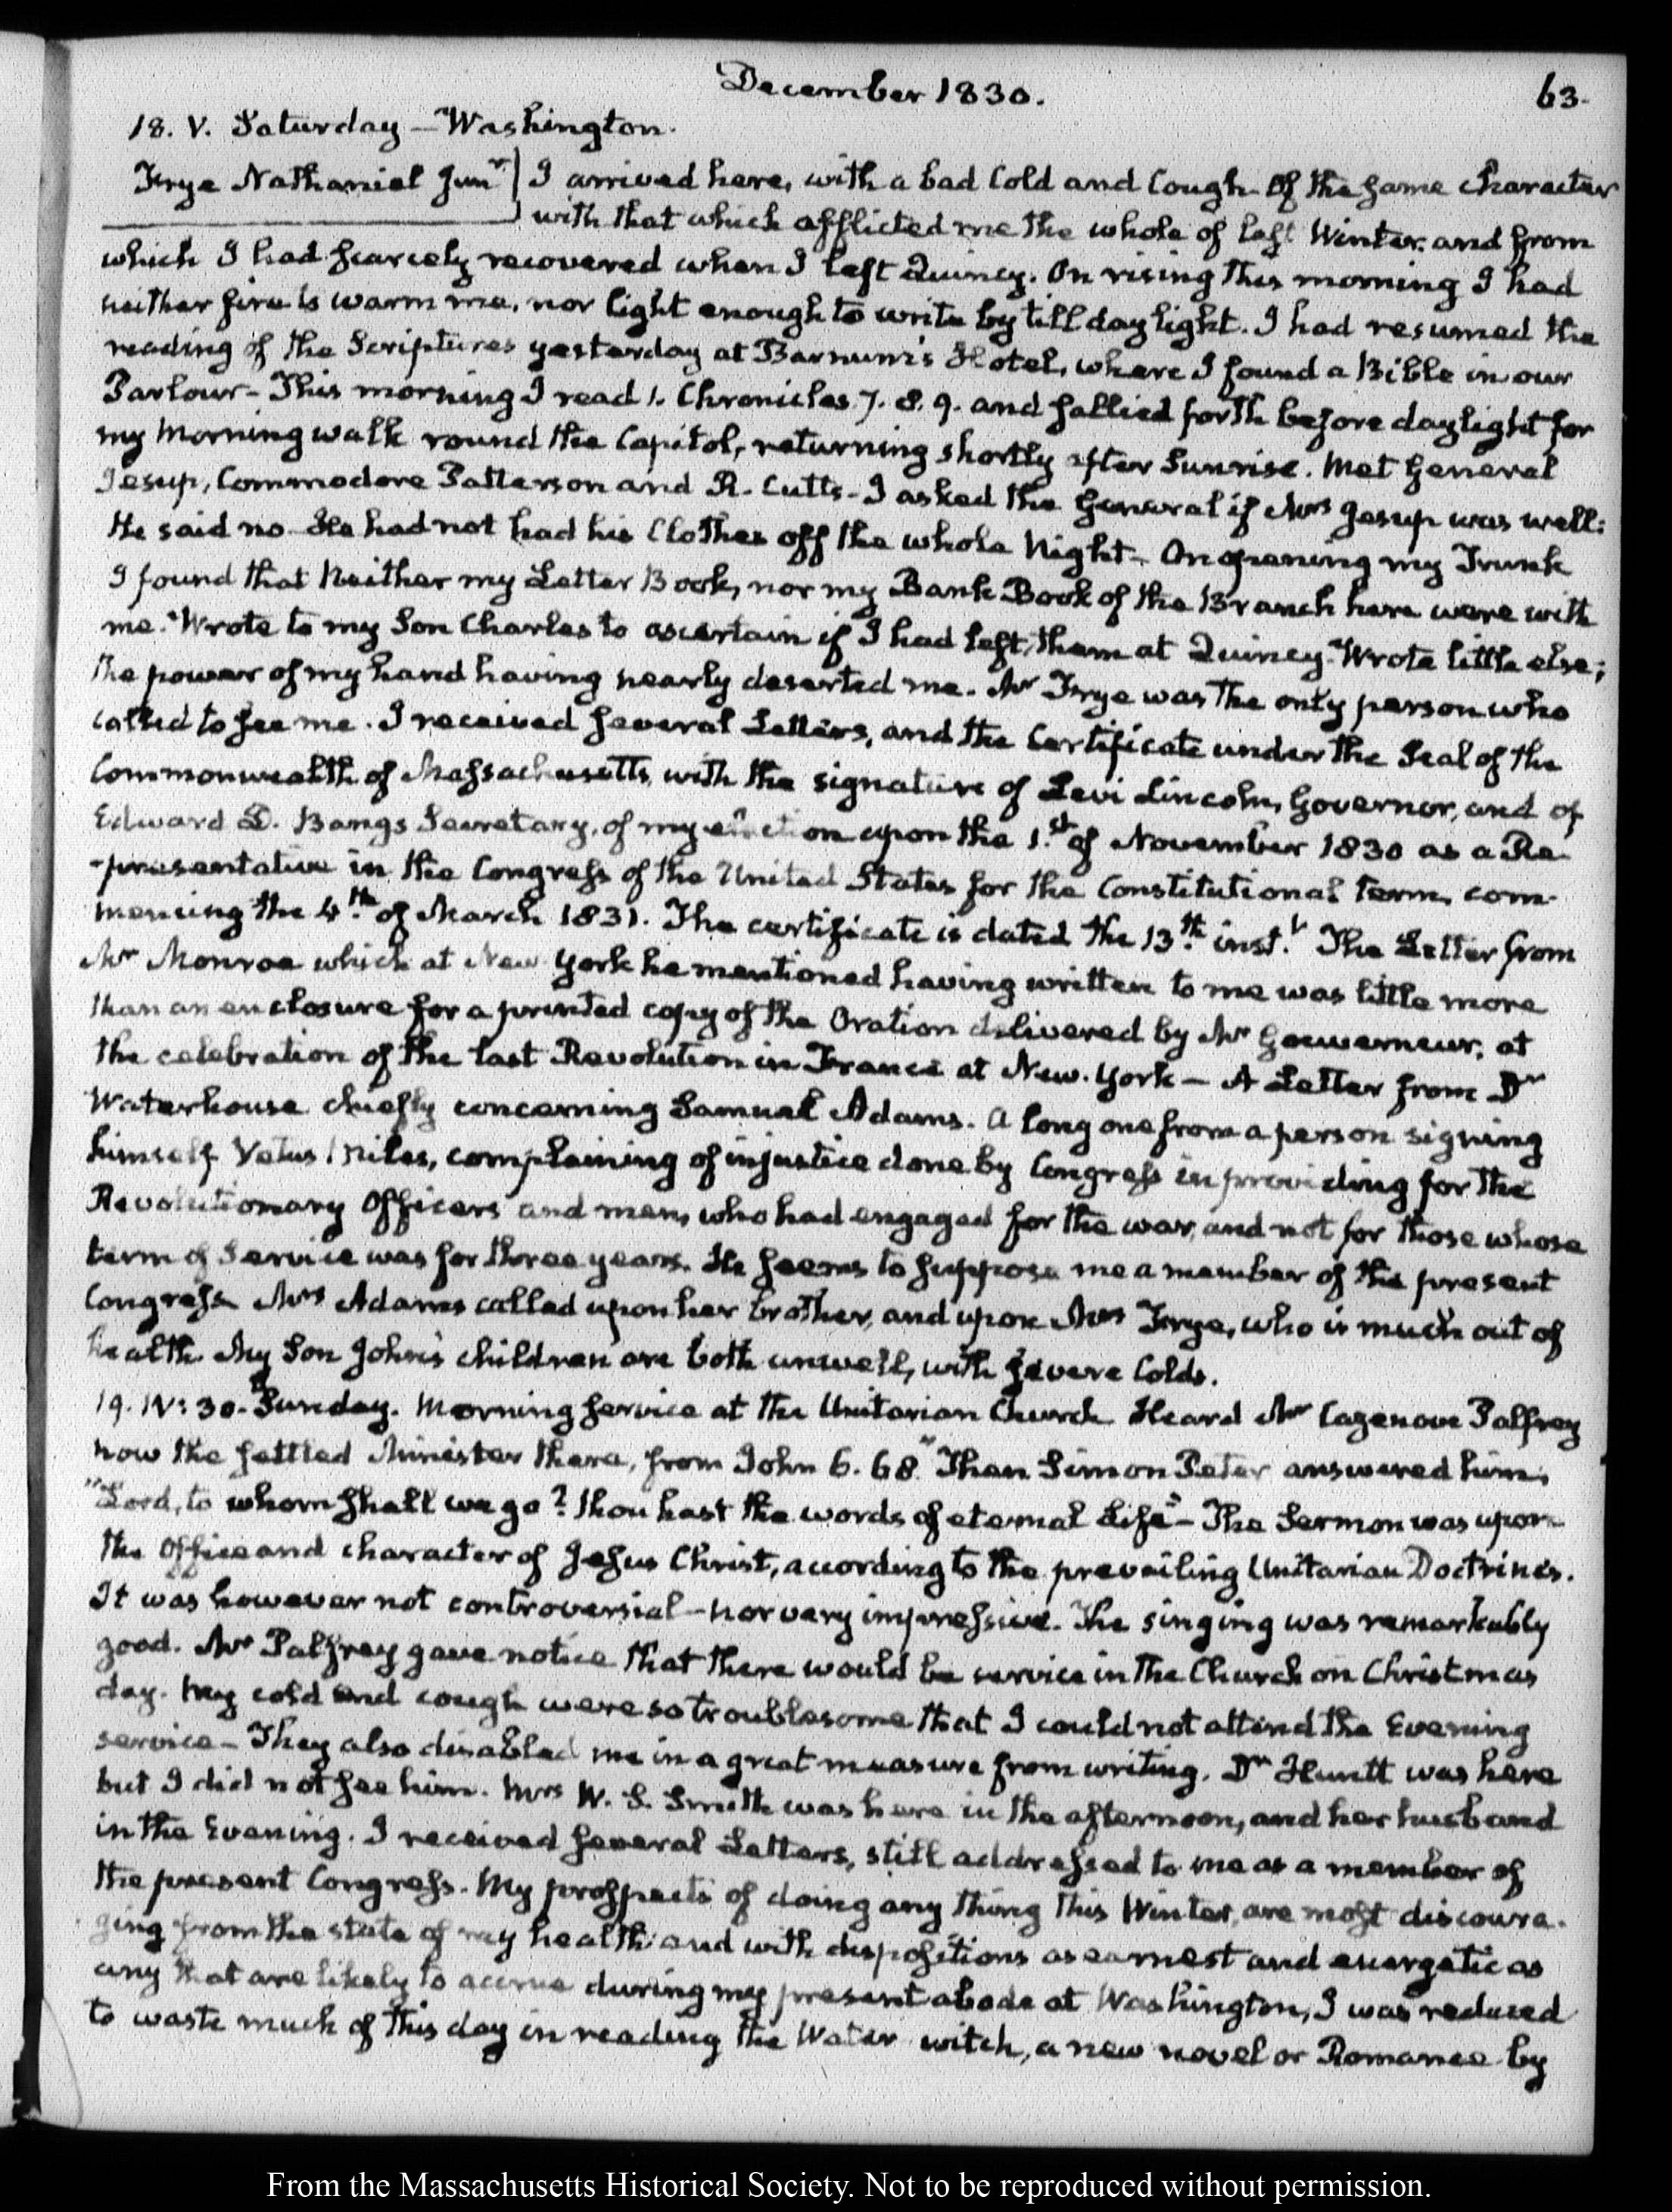 December 1830.
63.
18. V. Saturday — Washington.
Frye Nathaniel Junr I arrived here, with a bad Cold and Cough of the same character
with that which afflicted me the whole of last Winter, and from
which I had scarcely recovered when I left Quincy. On rising this morning I had
neither fire to warm me, nor light enough to write by till daylight. I had resumed the
reading of the Scriptures yesterday at Barnum's Hotel, where I found a Bible in our
Parlour - This morning I read 1. Chronicles 7. 8. 9. and sallied forth before daylight for
my Morning walk round the Capitol, returning shortly after Sunrise. Met General
Jesup, Commodore Patterson and R. Cutts - I asked the General if Mrs Jesup was well:
He said no - He had not had his Clothes off the whole Night - On opening my Trunk
I found that Neither my Letter Book, nor my Bank Book of the Branch here were with
me. Wrote to my Son Charles to ascertain if I had left them at Quincy. Wrote little else;
the power of my hand having nearly deserted me. Mr Frye was the only person who
called to see me. I received several Letters, and the Certificate under the Seal of the
Commonwealth of Massachusetts, with the signature of Levi Lincoln, Governor, and of
Edward D. Bangs Secretary, of my election upon the 1.st of November 1830 as a Re-
-presentative in the Congress of the United States for the Constitutional term, com-
mencing the 4.th of March 1831. The certificate is dated the 13.th inst.t The Letter from
Mr Monroe which at New York he mentioned having written to me was little more
than an enclosure for a printed copy of the Oration delivered by Mr Gouverneur, at
the celebration of the last Revolution in France at New-York — A Letter from Dr
Waterhouse chiefly concerning Samuel Adams. A long one from a person signing
himself Vetus Miles, complaining of injustice done by Congress in providing for the
Revolutionary Officers and men, who had engaged for the war, and not for those whose
term of Service was for three years. He seems to suppose me a member of the present
Congress. Mrs Adams called upon her brother, and upon Mrs Frye, who is much out of
health. My Son John's children are both unwell, with severe Colds.
19. IV: 30. Sunday. Morning service at the Unitarian Church. Heard Mr Cazenove Palfrey
now the settled Minister there, from John 6. 68. "Then Simon Peter answered him,
"Lord, to whom shall we go? thou hast the words of eternal Life" - The Sermon was upon
the Office and character of Jesus Christ, according to the prevailing Unitarian Doctrines.
It was however not controversial - nor very impressive. The singing was remarkably
good. Mr Palfrey gave notice that there would be service in the Church on Christmas
day. My cold and cough were so troublesome that I could not attend the Evening
service - They also disabled me in a great measure from writing. Dr Huntt was here
but I did not see him. Mrs W. S. Smith was here in the afternoon, and her husband
in the Evening. I received several Letters, still addressed to me as a member of
the present Congress. My prospects of doing any thing this Winter, are most discoura-
ging from the state of my health; and with dispositions as earnest and energetic as
any that are likely to accrue during my present abode at Washington, I was reduced
to waste much of this day in reading the Water witch, a new novel or Romance by
From the Massachusetts Historical Society. Not to be reproduced without permission.